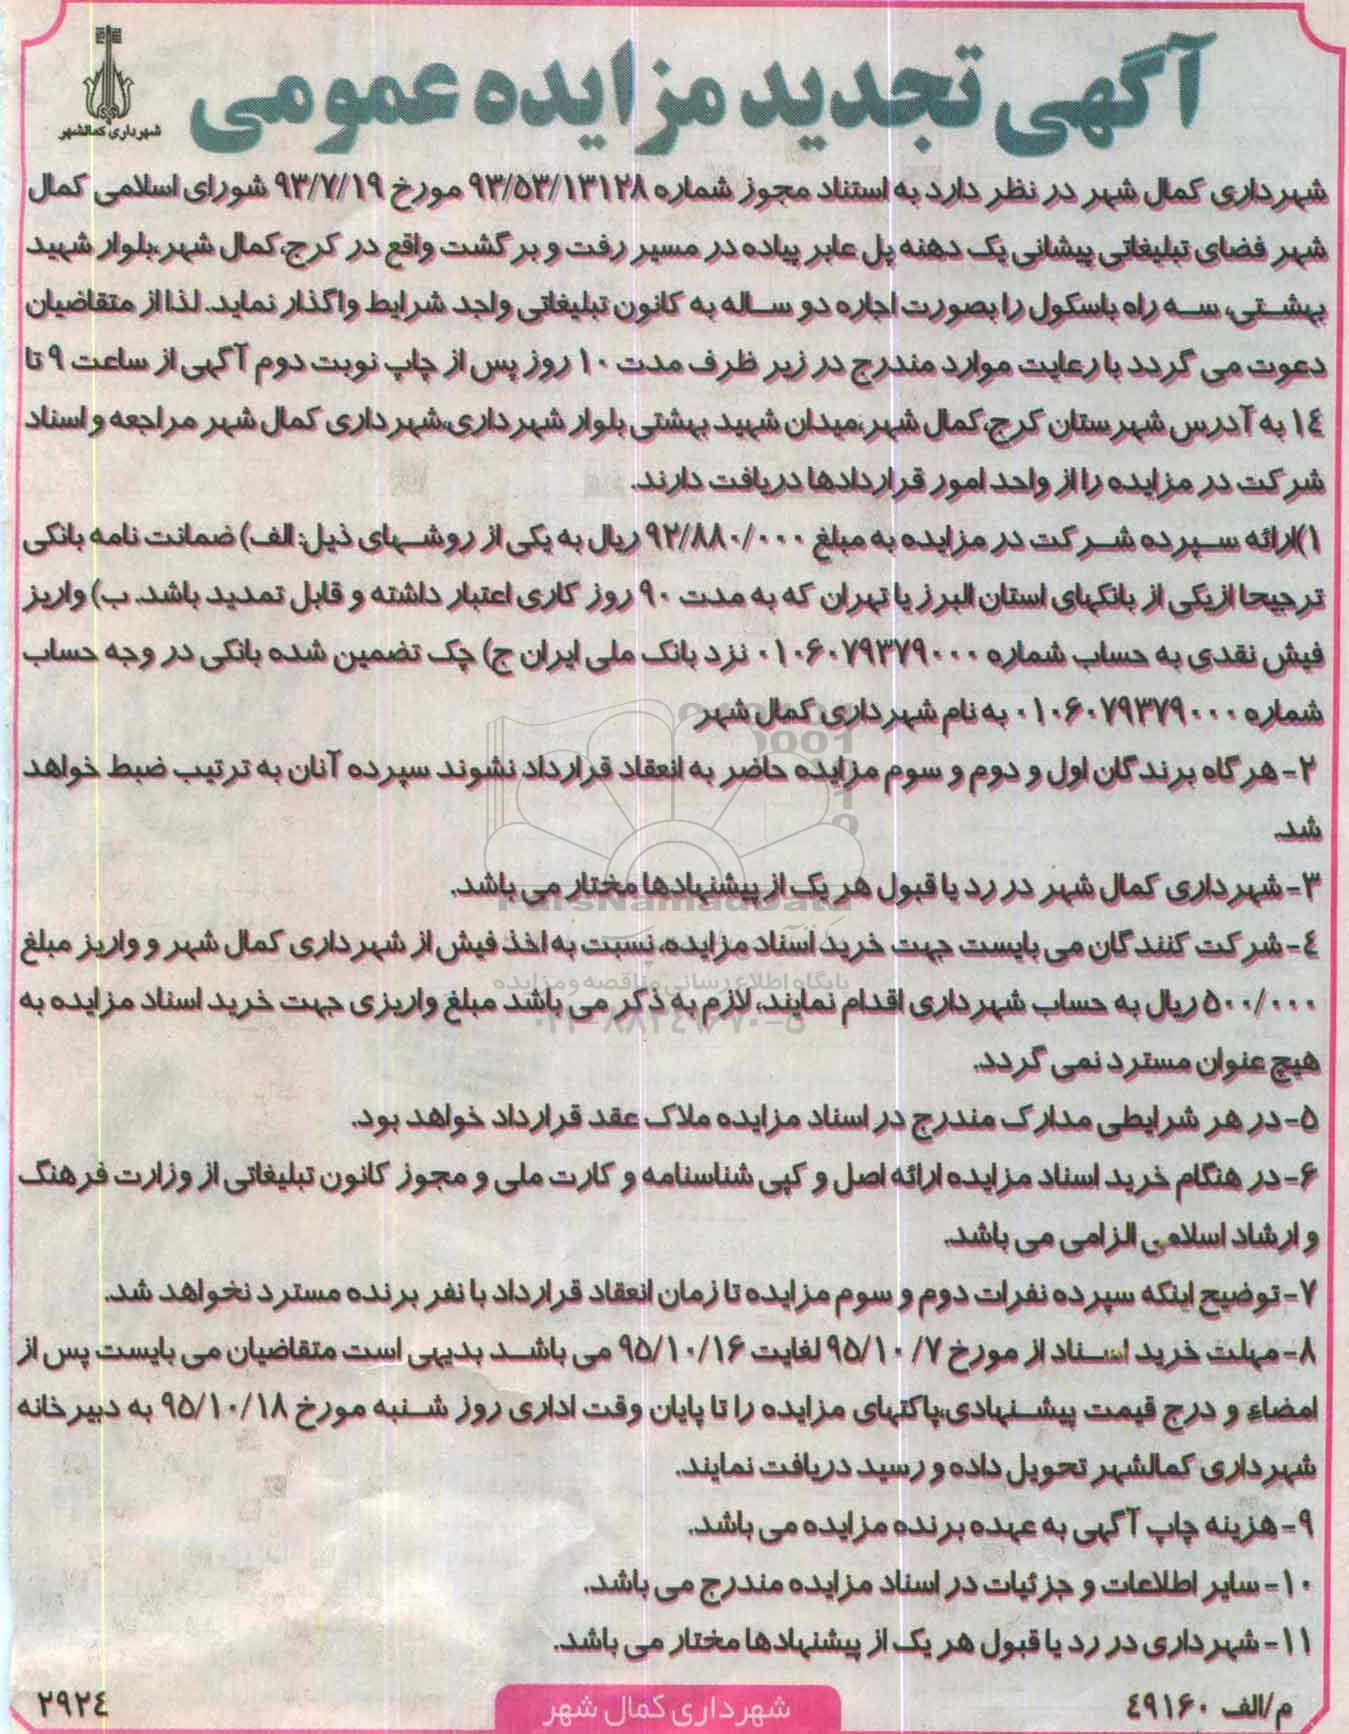 آگهی تجدید مزایده عمومی
شهرداری کمالشهر
شهرداری کمال شهر در نظر دارد به استناد مجوز شماره ۹۳/۵۳/۱۳۱۲۸ مورخ ۹۳/۷/۱۹ شورای اسلامی کمال
شهر فضای تبلیغاتی پیشانی یک دهنه پل عابر پیاده در مسیر رفت و برگشت واقع در کرج،کمال شهر،بلوار شهید
بهشتی، سه راه باسکول را بصورت اجاره دو ساله به کانون تبلیغاتی واجد شرایط واگذار نماید. لذا از متقاضیان
دعوت می گردد با رعایت موارد مندرج در زیر ظرف مدت ۱۰ روز پس از چاپ نوبت دوم آگهی از ساعت ۹ تا
۱٤ به آدرس شهرستان کرج،کمال شهر،میدان شهید بهشتی بلوار شهرداری،شهرداری کمال شهر مراجعه و اسناد
شرکت در مزایده را از واحد امور قراردادها دریافت دارند.
۱)ارائه سپرده شرکت در مزایده به مبلغ ۹۲/۸۸۰/۰۰۰ ریال به یکی از روشهای ذیل: الف) ضمانت نامه بانکی
ترجیحا از یکی از بانکهای استان البرز یا تهران که به مدت ۹۰ روز کاری اعتبار داشته و قابل تمدید باشد. ب) واریز
فیش نقدی به حساب شماره ۰۱۰۶۰۷۹۳۷۹۰۰۰ نزد بانک ملی ایران ج) چک تضمین شده بانکی در وجه حساب
شماره ۰۱۰۶۰۷۹۳۷۹۰۰۰ به نام شهرداری کمال شهر
۲- هرگاه برندگان اول و دوم و سوم مزایده حاضر به انعقاد قرارداد نشوند سپرده آنان به ترتیب ضبط خواهد
شد.
۳- شهرداری کمال شهر در رد یا قبول هر یک از پیشنهادها مختار می باشد.
ParsNamadData
٤- شرکت کنندگان می بایست جهت خرید اسناد مزایده، نسبت به اخذ فیش از شهرداری کمال شهر و واریز مبلغ
پایگاه اطلاع رسانی مناقصه و مزایده
۵۰۰/۰۰۰ ریال به حساب شهرداری اقدام نمایند، لازم به ذکر می باشد مبلغ واریزی جهت خرید اسناد مزایده به
هیچ عنوان مسترد نمی گردد.
۵- در هر شرایطی مدارک مندرج در اسناد مزایده ملاک عقد قرارداد خواهد بود.
۶- در هنگام خرید اسناد مزایده ارائه اصل و کپی شناسنامه و کارت ملی و مجوز کانون تبلیغاتی از وزارت فرهنگ
و ارشاد اسلامی الزامی می باشد.
۷- توضیح اینکه سپرده نفرات دوم و سوم مزایده تا زمان انعقاد قرارداد با نفر برنده مسترد نخواهد شد.
۸- مهلت خرید اسناد از مورخ ۹۵/۱۰/۷ لغایت ۹۵/۱۰/۱۶ می باشد بدیهی است متقاضیان می بایست پس از
امضاء و درج قیمت پیشنهادی،پاکتهای مزایده را تا پایان وقت اداری روز شنبه مورخ ۹۵/۱۰/۱۸ به دبیرخانه
شهرداری کمالشهر تحویل داده و رسید دریافت نمایند.
۹- هزینه چاپ آگهی به عهده برنده مزایده می باشد.
۱۰- سایر اطلاعات و جزئیات در اسناد مزایده مندرج می باشد.
۱۱- شهرداری در رد یا قبول هر یک از پیشنهادها مختار می باشد.
م/الف ٤۹۱۶۰
شهرداری کمال شهر
۲۹۲٤